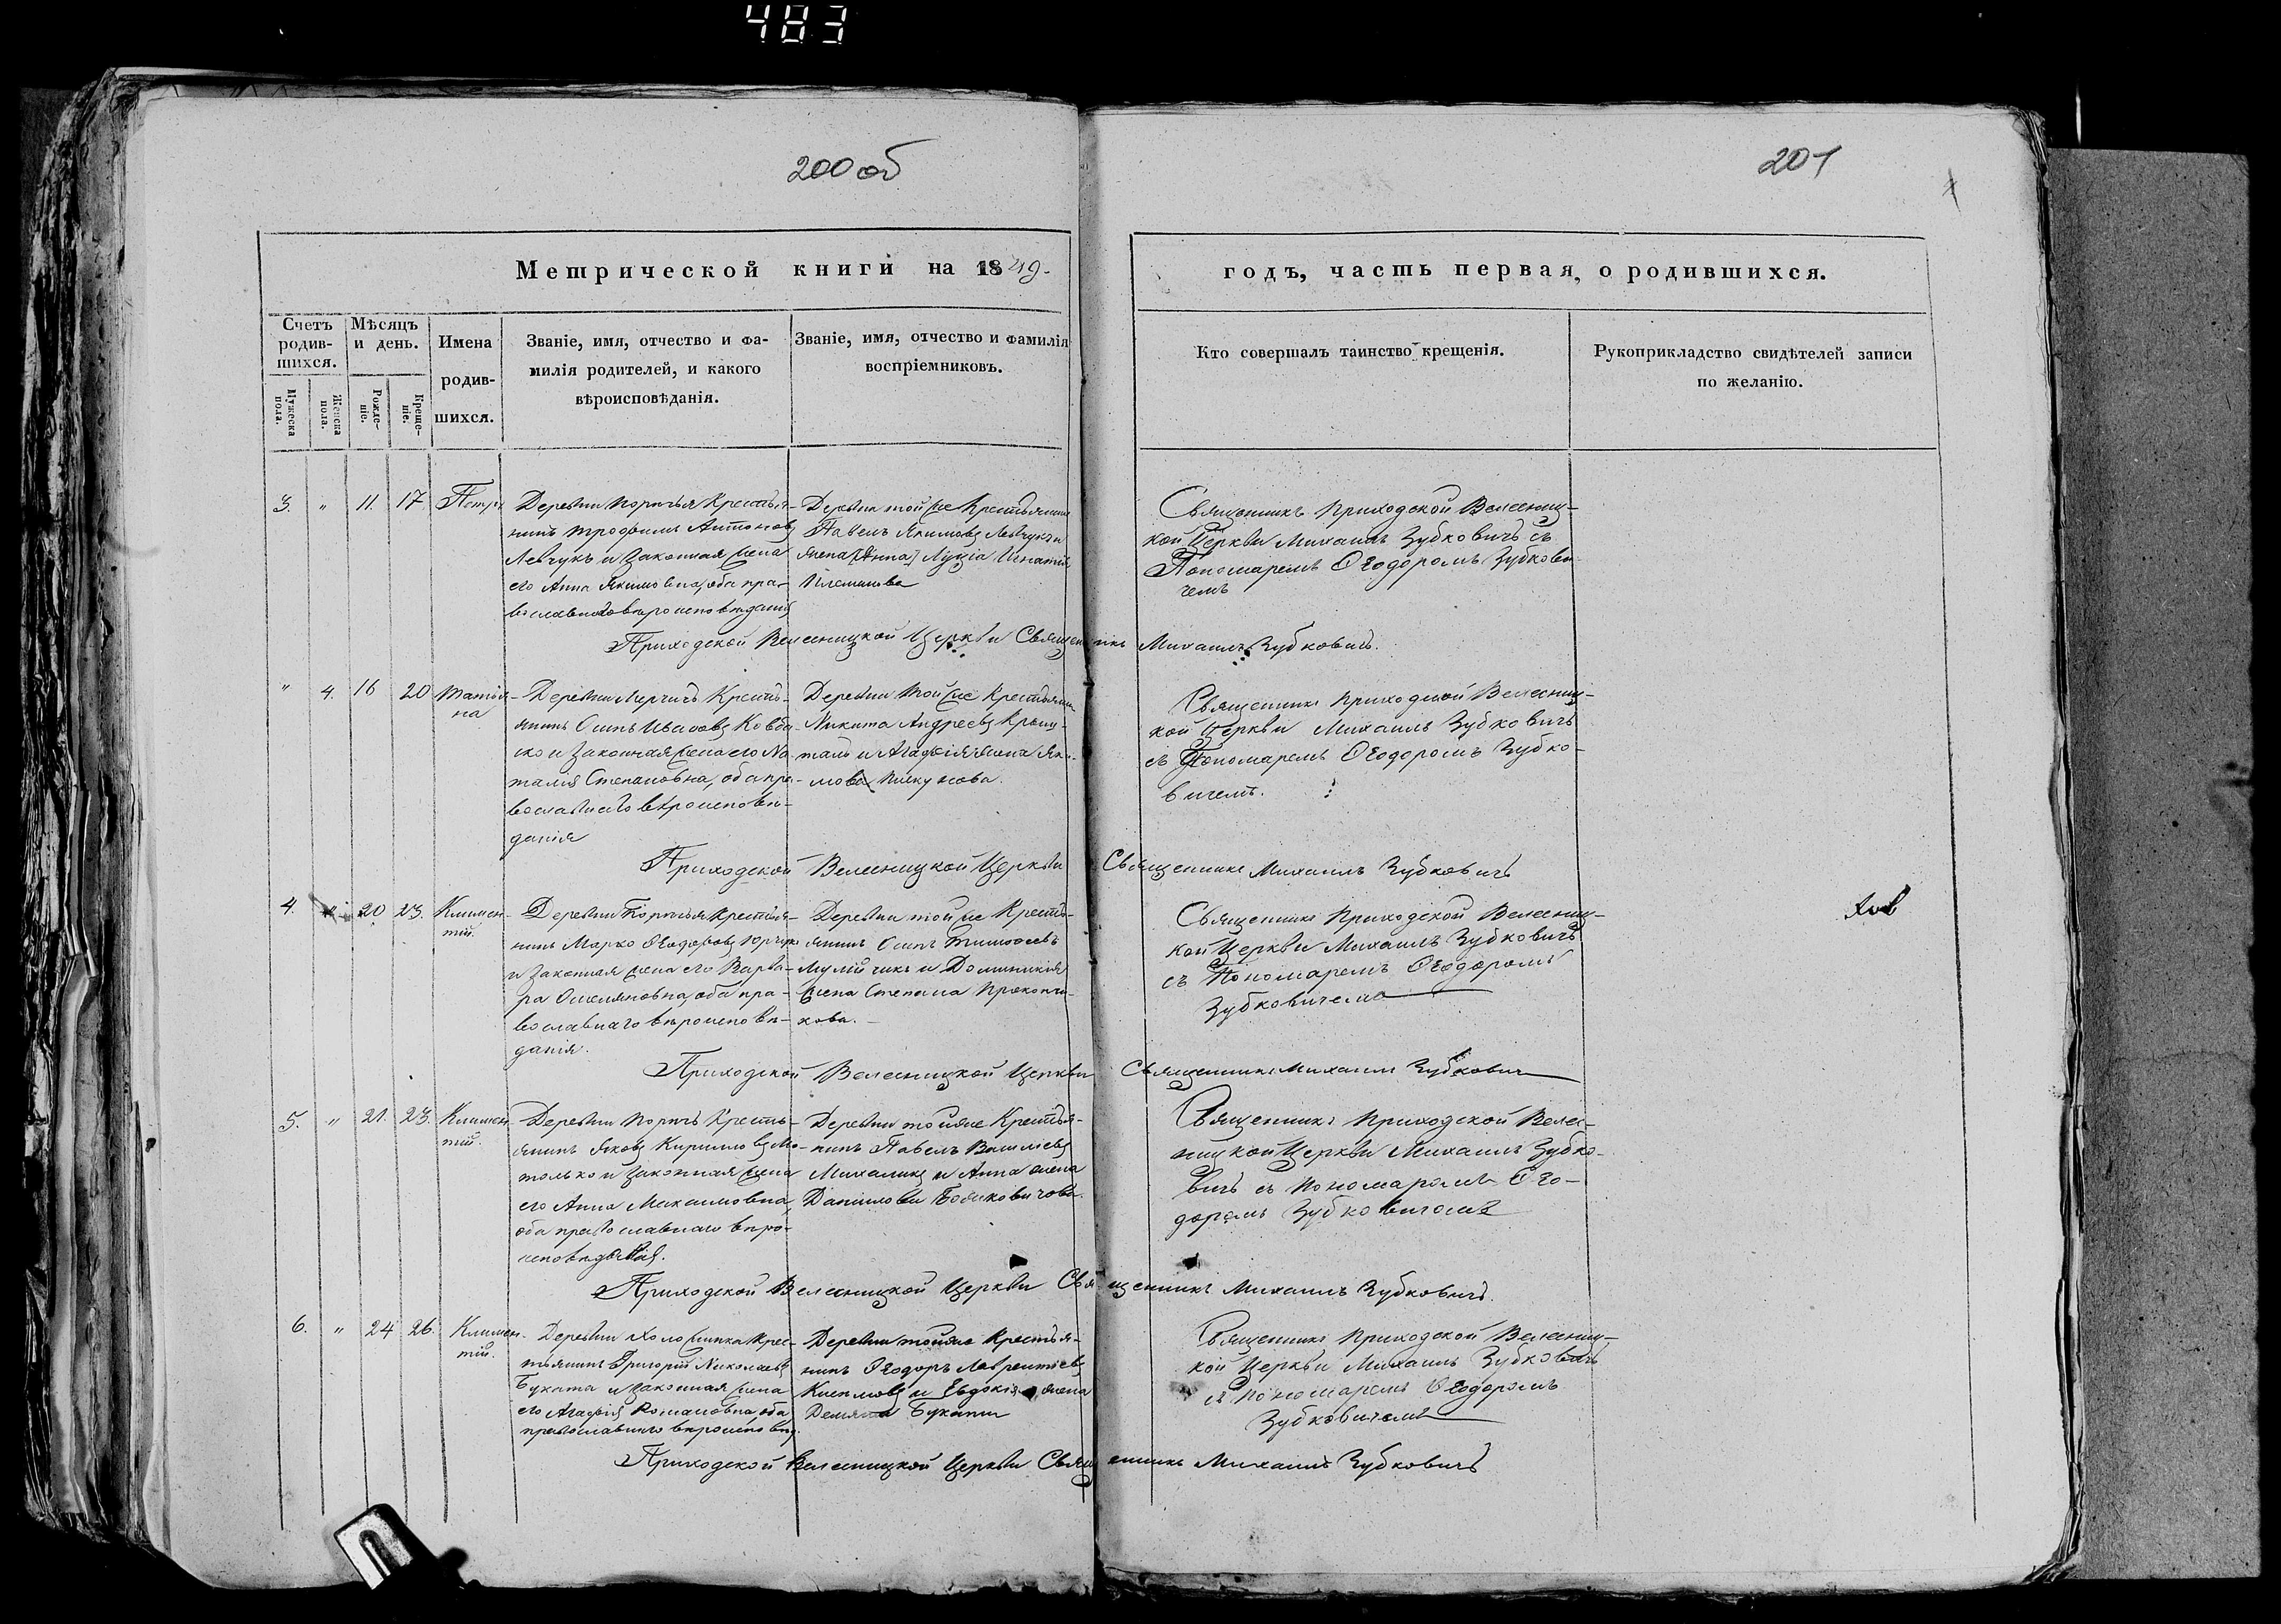 483
200 об
201
Метрической книги на 1849
годъ, часть первая, о родившихся.
Счетъ родив-шихся.
Мужеска пола.
Женска пола.
Мѣсяцъ и день.
Рожде-ніе.
Креще-ніе.
Имена родив-шихся.
Званіе, имя, отчество и фа-
милія родителей, и какого
вѣроисповѣданія.
Званіе, имя, отчество и фамилія
воспріемниковъ.
Кто совершалъ таинство крещенія.
Рукоприкладство свидѣтелей записи
по желанію.
3. " 11. 17 Петръ
Деревни Поричья Крестья-
нинъ Трофимъ Антоновъ
Левчукъ и законная жена
его Анна Якимовна, оба пра-
вославнаго вѣроисповѣданія
Деревни той же Крестьянинъ
Павелъ Якимовъ Левчукъ и
жена Анна Луція Игнатія
Приходской Велесницкой Церкви Священникъ Михаилъ Зубковичъ.
Священникъ Приходской Велесниц-
кой Церкви Михаилъ Зубковичъ съ
Пономаремъ Ѳеодоромъ Зубкови-
чемъ
" 4. 16 20 Татья-
на
Деревни Кресть-
янинъ Осипъ Ивановъ
и законная жена его На-
талія Степановна, оба пра-
вославнаго вѣроисповѣ-
данія
Деревни той же Крестьянинъ
Никита Андреевъ
и Агафія жена Яки-
мова
Священникъ Приходской Велесниц-
кой Церкви Михаилъ Зубковичъ
съ Пономаремъ Ѳеодоромъ Зубко-
вичемъ.
Приходской Велесницкой Церкви Священникъ Михаилъ Зубковичъ
4. " 20 23. Климен-
тій.
Деревни Поричья Крестья-
нинъ Марко Ѳеодоровъ
и законная жена его Варва-
ра оба пра-
вославнаго вѣроисповѣ-
данія.
Деревни той же Кресть-
янинъ Осипъ Тимофеевъ
и Доминикія
жена Степана Прокопчи-
кова.
Священникъ Приходской Велесниц-
кой Церкви Михаилъ Зубковичъ
съ Пономаремъ Ѳеодоромъ
Зубковичемъ
Приходской Велесницкой Церкви Священникъ Михаилъ Зубковичъ
5. " 21. 23. Климен-
тій.
Деревни Поричъ Кресть-
янинъ Яковъ Кириловъ Мо-
только и законная жена
его Анна Максимовна,
оба православнаго вѣро-
исповѣданія.
Деревни тойже Крестья-
нинъ Павелъ
и Анна жена
Данилова
Священникъ Приходской Велес-
ницкой Церкви Михаилъ Зубко-
вичъ съ Пономаремъ Ѳео-
доромъ Зубковичемъ
Приходской Велесницкой Церкви Священникъ Михаилъ Зубковичъ.
6. " 24 26. Климен-
тій.
Деревни Крес-
тьянинъ Григорій Николаевъ
Буката и законная жена
его Агафія Романовна, оба
православнаго вѣроисповѣд.
Деревни тойже Крестья-
нинъ Ѳеодоръ Лаврентіевъ
и Евдокія жена
Демяна Букаты
Священникъ Приходской Велесниц-
кой Церкви Михаилъ Зубковичъ
съ Пономаремъ Ѳеодоромъ
Зубковичемъ
Приходской Велесницкой Церкви Священникъ Михаилъ Зубковичъ